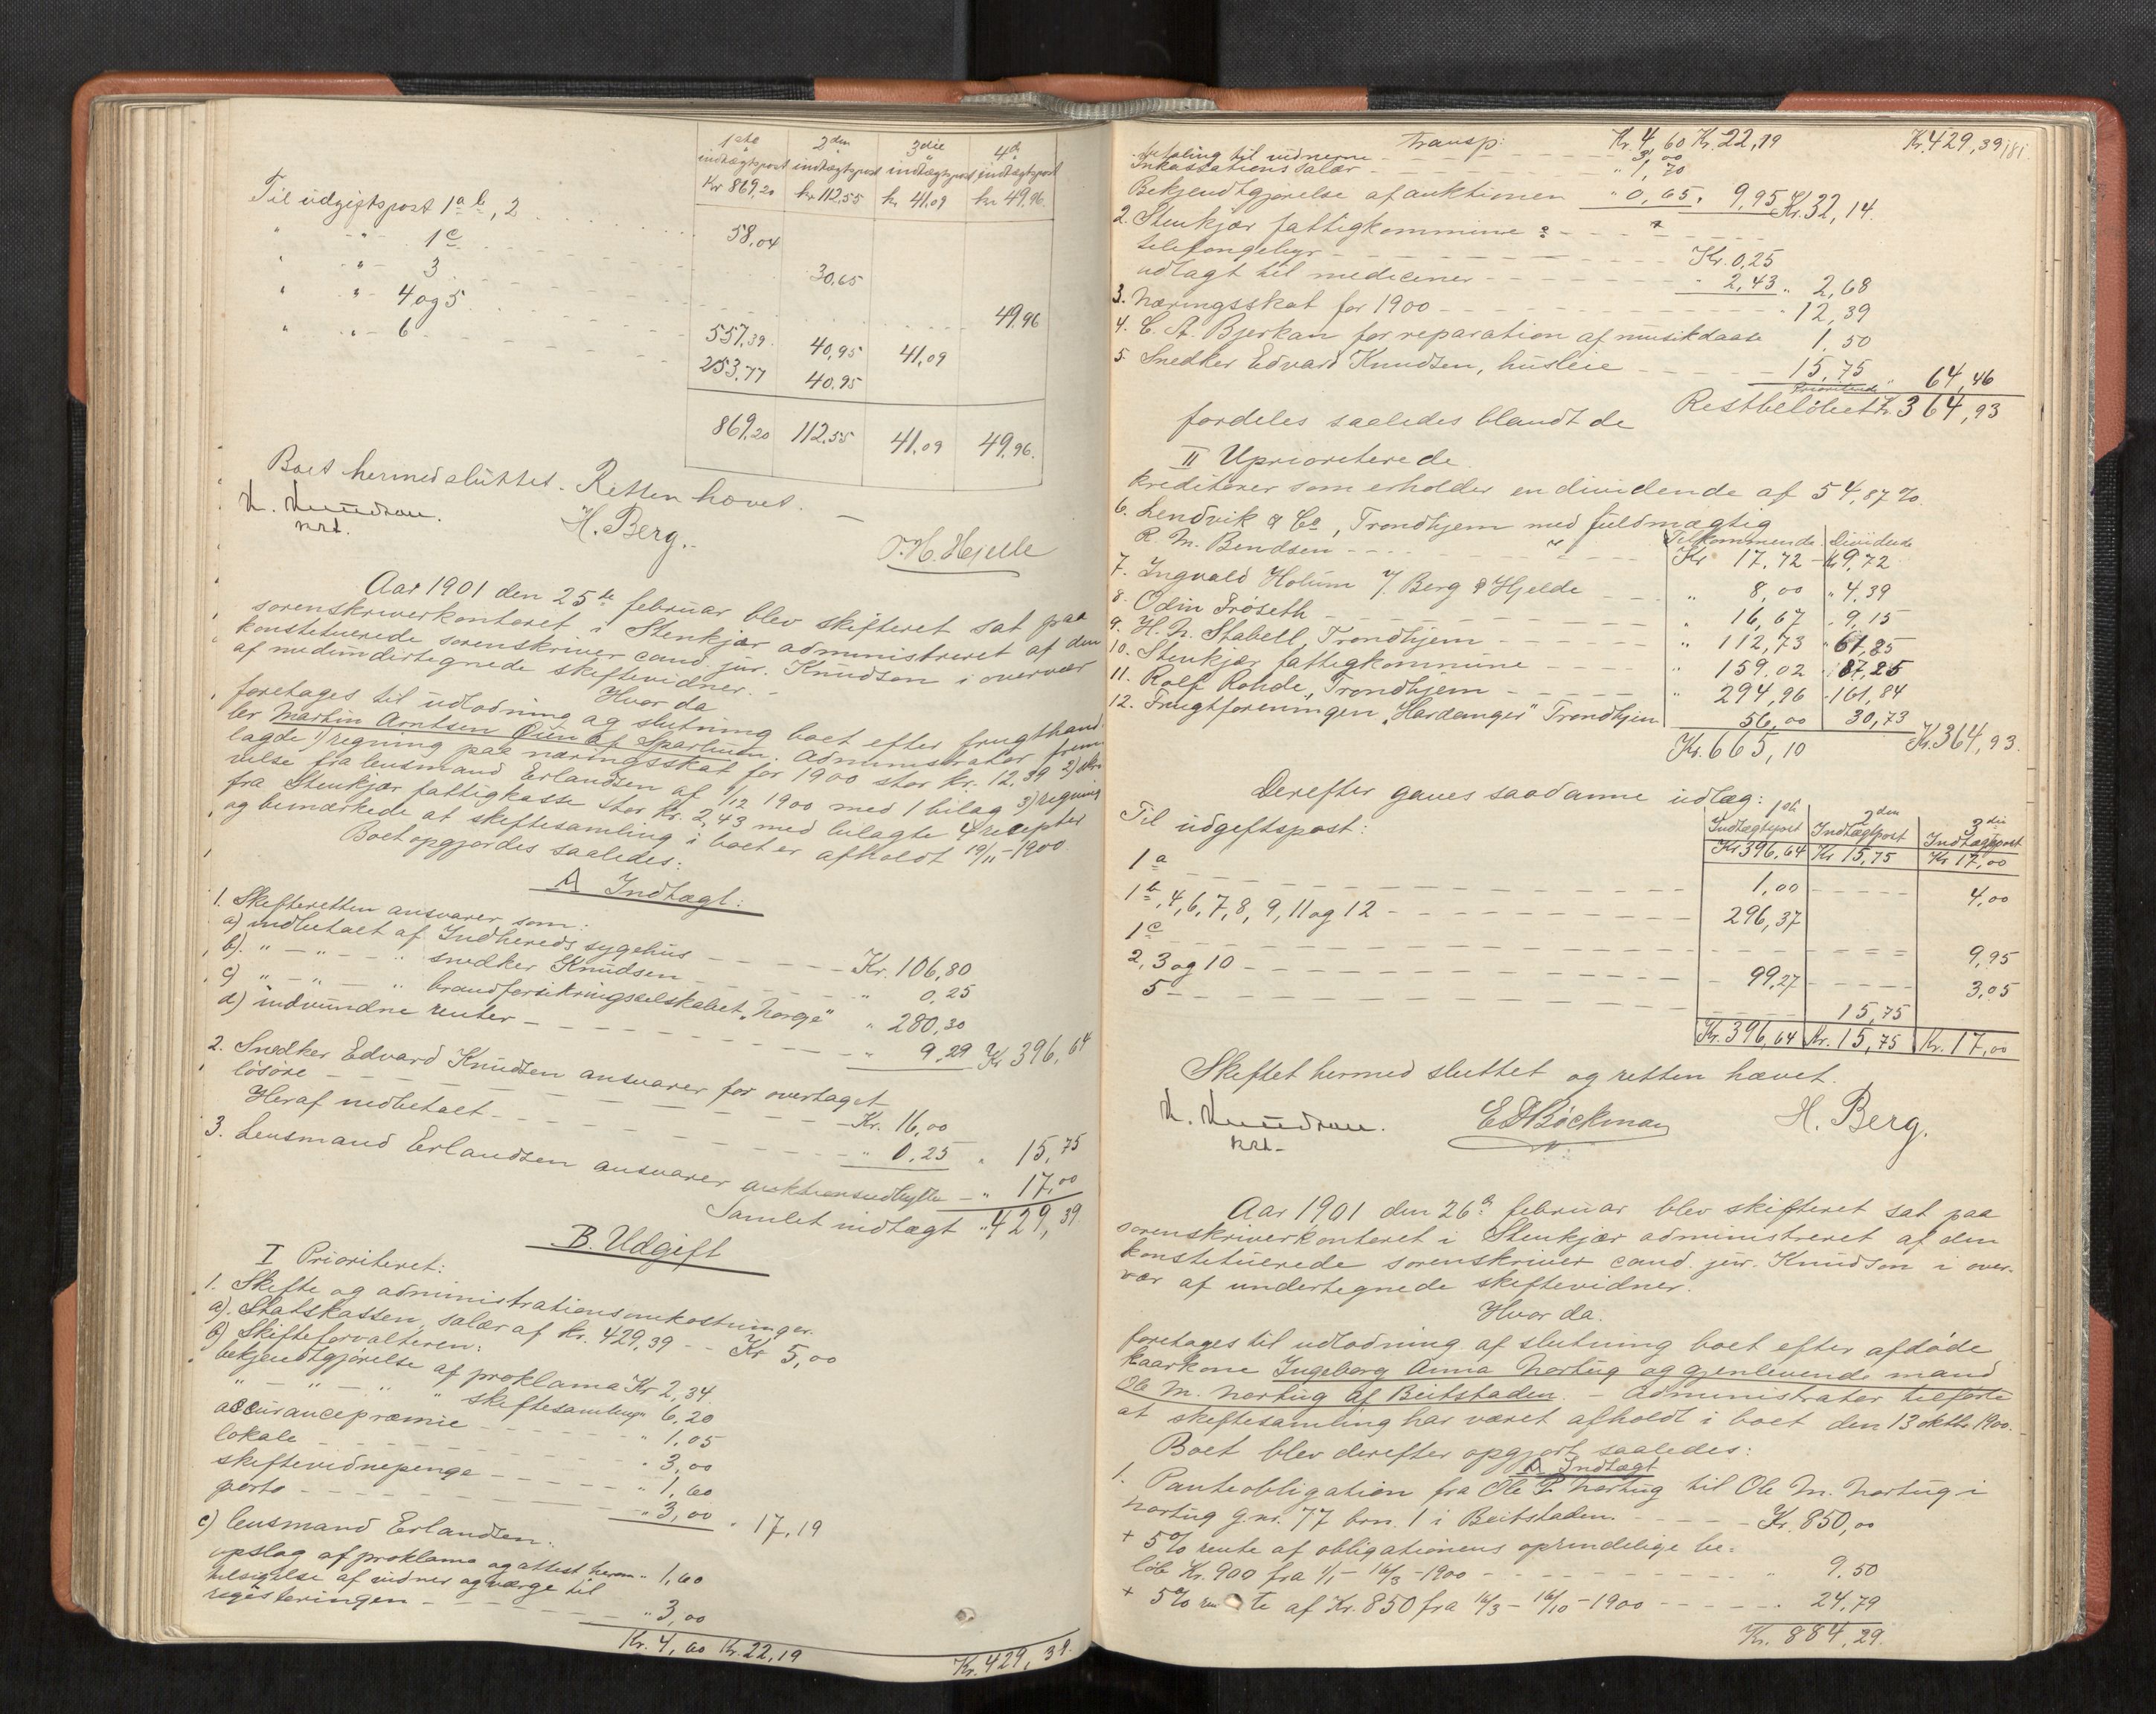 1ste 2den 3die 4de
indtægtspost indtægtspost indtægtspost indtægtspost
Kr 869,20 kr 112,55 kr 41,09 kr 49,96
Til udgiftspost 1 a b, 2 58,04
" - " - 1 c 30,65
" - " - 3 49,96
" - " - 4 og 5 557,39 40,95 41,09
" - " - 6 253,77 40,95
869,20 112,55 41,09 49,96.
Boet hermed sluttet. Retten hævet. —
K. Knudson. H. Berg. O. H. Hjelle
kst.
Aar 1901 den 25de februar blev skifteret sat paa
sorenskriverkontoret i Stenkjær administreret af den
konstituerede sorenskriver cand. jur. Knudson i overvær
af medundertegnede skiftevidner. -
Hvor da
foretages til udlodning og slutning boet efter frugthand-
ler Martin Arntsen Øien af Sparbuen. Administrator frem-
lagde 1) regning paa næringsskat for 1900 stor kr. 12,39 2) skri-
velse fra lensmand Erlandsen af 1/12 1900 med 1 bilag 3) regning
fra Stenkjær fattigkasse stor kr. 2,43 med bilagte 4 recepter
og bemærkede at skiftesamling i boet er afholdt 19/11-1900.
Boet opgjordes saaledes:
A Indtægt:
1. Skifteretten ansvarer som:
a) indbetalt af Indhereds sygehus - - - Kr. 106,80
b). " - " - " snedker Knudsen - - - " 0,25
c) " - " - " brandforsikringsselskabet "Norge" " 280,30
d) indvundne renter - - - " 9,29 Kr 396,64
2. Snedker Edvard Knudsen ansvarer for overtaget
løsøre - - - Kr. 16,00
Heraf nedbetalt - - - " 0,25 " 15,75
3. Lensmand Erlandsen ansvarer auktionsudbytte - " 17,00
Samlet indtægt " 429,39
B. Udgift
I Prioriteret:
1. Skifte og administrationsomkostninger.
a). Statskassen, salær af kr. 429,39 - - Kr 5,00
b) Skifteforvalteren:
bekjendtgjørelse af proklama Kr 2,34
" - " - " " skiftesamling " 6,20
assurancepræmie " 1,05
lokale - - - " 3,00
skiftevidnepenge - - - " 1,60
porto - - - " 3,00 " 17,19
c) lensmand Erlandsen:
opslag af proklama og attest herom " 1,60
tilsigelse af vidner og værge til
registeringen - - - " 3,00
Kr. 4,60 Kr. 22,19 Kr. 429,39.
Transp: Kr. 4,60 Kr. 22,19 Kr. 429,39 181.
betaling til vidnerne - - - 3,00
Inkassations salær - - - " 1,70
Bekjendtgjørelse af auktionen " 0,65. 9,95 Kr. 32,14.
2. Stenkjær fattigkommune:
telefongebyr - - - Kr. 0,25
udlagt til mediciner - - - " 2,43 " 2,68
3. Næringsskat for 1900 - - - " 12,39
4. C. A. Bjerkan for reparation af musikdaase 1,50
5. Snedker Edvard Knudsen, husleie - - - 15,75 " 64,46
Restbeløbet Kr 364,93
fordeles saaledes blandt de
II Uprioriterede
kreditorer som erholder en dividende af 54,87 %.
6. Lendvik & Co, Trondhjem med fuldmægtig Tilkommende Dividende
R. M. Bendsen - - - Kr 17,72 - Kr 9,72
7. Ingvald Holum v/ Berg & Hjelde - - " 8,00 " 4,39
8. Odin Frøseth - - - " 16,67 " 9,15
9. H. N. Stabell, Trondhjem - - - " 112,73 " 61,85
10. Stenkjær fattigkommune - - - " 159,02 " 87,25
11. Rolf Rohde, Trondhjem - - - " 294,96 " 161,84
12. Frugtforeningen "Hardanger" Trondhjem 56,00 30,73
Kr. 665,10 Kr. 364,93.
Derefter gaves saadanne udlæg:
Til udgiftspost: 1ste 2den 3die
Indtægtspost Indtægtpost Indtægtpost
Kr 396,64 Kr 15,75 Kr 17,00
1 a - - - 1,00 - - - 4,00
1 b, 4, 6, 7, 8, 9, 11 og 12 - - - 296,37
1 c - - - 9,95
2, 3 og 10 - - - 99,27 - - - 3,05
5 - - - 15,75
Kr. 396,64 Kr. 15,75 Kr. 17,00
Skiftet hermed sluttet og retten hævet.
K. Knudson. E Bøckman H. Berg.
kst.
Aar 1901 den 26de februar blev skifteret sat paa
sorenskriverkontoret i Stenkjær administreret af den
konstituerede sorenskriver cand. jur. Knudson i over-
vær af undertegnede skiftevidner.
Hvor da.
foretages til udlodning af slutning boet efter afdøde
kaarkone Ingeborg Anna Nortug og gjenlevende mand
Ole M. Nortug af Beitstaden. - Administrator tilførte
at skiftesamling har været afholdt i boet den 13 oktbr. 1900.
Boet blev derefter opgjort saaledes:
A Indtægt
1. Panteobligation fra Ole P. Nortug til Ole M. Nortug i
Nortug g.nr. 77 brn. 1 i Beitstaden - - - Kr. 850,00
+ 5 % rente af obligationens oprindelige be-
løb Kr. 900 fra 1/1 - 16/3 - 1900 - - - " 9.50
+ 5 % rente af Kr. 850 fra 16/3 - 16/10 - 1900 - - - " 24,79
Kr. 884,29.